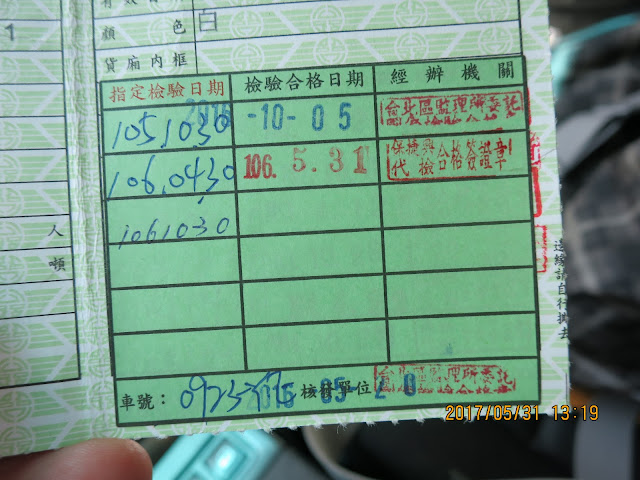 1
顏色 白
貨廂內框
指定檢驗日期 檢驗合格日期 經辦機關
105,1030 2016-10-05 台北區監理所委託
106,0430 106. 5. 31 保捷興 代檢合格簽證章
1061030
人
頓
邊緣請自行撕去
車號: 核發單位 台北區監理所委託
2017/05/31 13:19